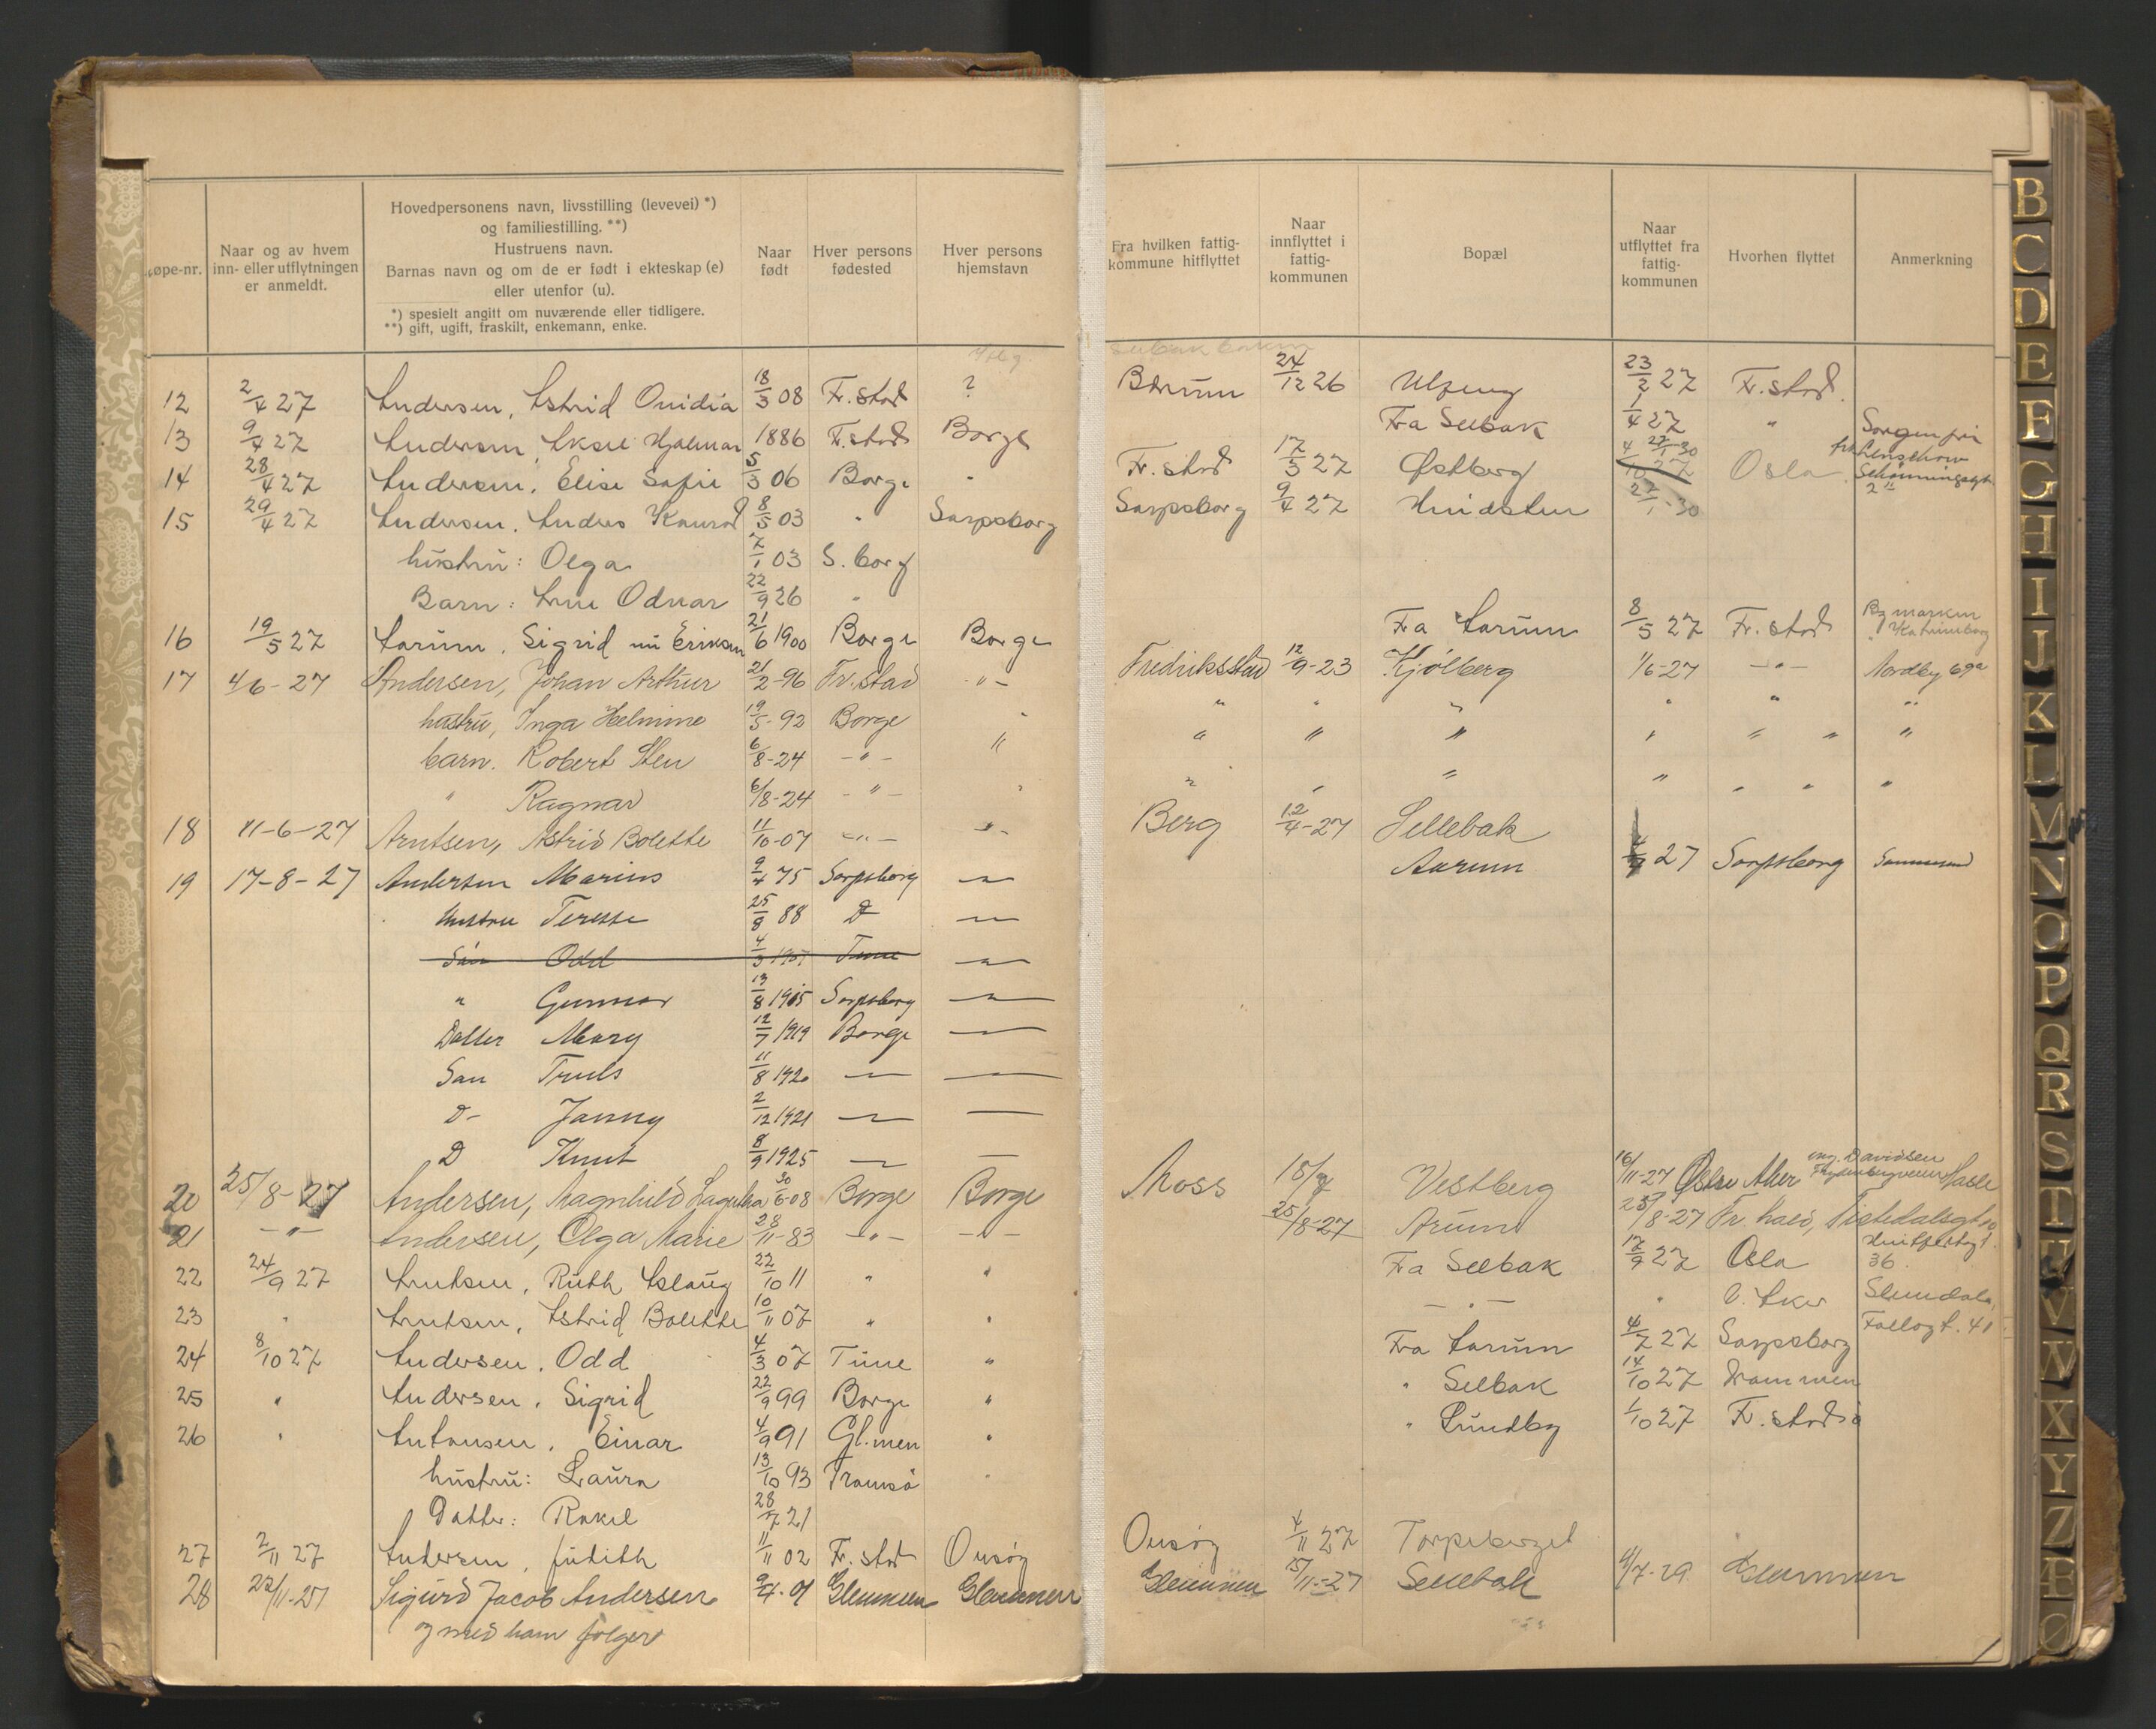 øpe-nr. | Naar og av hvem inn- eller utflytningen er anmeldt. | Hovedpersonens navn, livsstilling (levevei) *) og familiestilling. **) Hustruens navn. Barnas navn og om de er født i ekteskap (e) eller utenfor (u). *) spesielt angitt om nuværende eller tidligere. **) gift, ugift, fraskilt, enkemann, enke. | Naar født | Hver persons fødested | Hver persons hjemstavn | Fra hvilken fattig-kommune hitflyttet | Naar innflyttet i fattig-kommunen | Bopæl | Naar utflyttet fra fattig-kommunen | Hvorhen flyttet | Anmerkning
12 2/4 27 Andersen, Astrid Ovidia 18/3 08 Fr.stad ? Bærum 24/12 26 Ulfeng 23/2 27 Fr.stad.
13 9/4 27 Andersen, Aksel Hjalmar 1886 Fr.stad Borge Fra Selbak 1/4 27 " Sorgenfri
14 28/4 27 Andersen, Elise Sofie 5/3 06 Borge " Fr.stad 17/3 27 Østberg 4/10 27 27/1-30 Oslo Schønningsgt. 2"
15 29/4 27 Andersen, Anders Konrad 8/5 03 " Sarpsborg Sarpsborg 9/4 27 Hvidsten 27/1-30
hustru: Olga 7/1 03 S.borg
Barn: Arne Odvar 22/9 26 "
16 19/5 27 Aarum, Sigrid nu Eriksen 21/6 1900 Borge Borge Fra Aarum 8/5 27 Fr.stad Bymarken Katrineborg
17 4/6-27 Andersen, Johan Arthur 21/2-96 Fr.stad -"- Fredriksstad 12/9-23 Kjølberg 1/6-27 -"- Nordby 69a
hustru, Inga Helmine 19/5-92 Borge " " " " " " "
barn. Robert Sten 6/8-24 -"- " " " " " " " "
" Ragnar 6/8-24 -"- " " " " " " " "
18 11-6-27 Arntsen, Astrid Bolette 11/10-07 -"- -"- Berg 12/4-27 Sellebak
19 17-8-27 Andersen Marius 9/4 75 Sarpsborg -"- Aarum 4/7 27 Sarpsborg
Hustru Terese 25/8 88 D -"-
Søn Odd 4/3 1907 Tune -"-
" Gunnar 13/8 1915 Sarpsborg -"-
Datter Mary 12/7 1919 Borge -"-
Søn Truls 11/8 1920 -"- -"-
D- Janny 2/12 1921 -"- —
D Knut 8/9 1925 -"- —
20 25/8-27 Andersen, Magnhild 30/6-08 Borge Borge Moss 15/7 Vestberg 16/11-27 Østre Aker ing. Davidsen Hasle
21 -"- Andersen, Olga Marie 28/11-83 -"- -"- 25/8-27 Arum 25/8-27 Fr.hald, Tistedalsgt.
22 24/9 27 Arntsen, Ruth Aslaug 22/10 11 " " Fra Selbak 17/9 27 Oslo Huitfeldtsgt. 36
23 " Arntsen, Astrid Bolette 10/11 07 " " -"- " V. Aker Slemdal
24 8/10 27 Andersen, Odd 4/3 07 Tune " Fra Aarum 4/7 27 Sarpsborg Follogt. 41
25 " Andersen, Sigrid 22/9 99 Borge " " Selbak 14/10 27 Drammen
26 " Antonsen, Einar 4/9 91 Gl.men " " Lundby 1/10 27 Fr.stad
hustru: Laura 13/10 93 Tromsø "
Datter: Rakel 28/7 21
27 2/11 27 Andersen, Judith 11/11 02 Fr.stad Onsøy Onsøy 4/11 27 Torpeberget
28 22/11-27 Sigurd Jacob Andersen 9/4-01 Glemmen Glemmen Glemmen 15/11-27 Sellebak 4/7-29 Glemmen
og med ham følger
B
C
D
E
F
G
H
I
J
K
L
M
N
O
P
Q
R
S
T
U
V
W
X
Y
Z
Æ
Ø